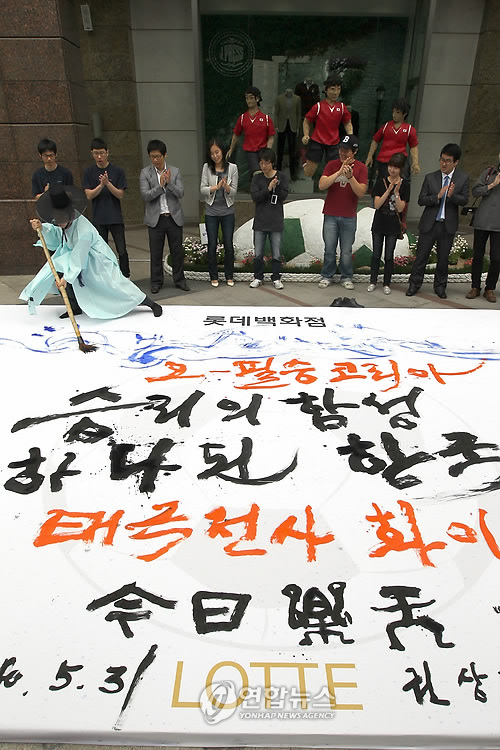 롯데백화점
오-필승코리아
승리의 함성
하나된 한국
태극전사 화이
今日樂
10.5.31
LOTTE
권상
연합뉴스
YONHAP NEWS AGENCY